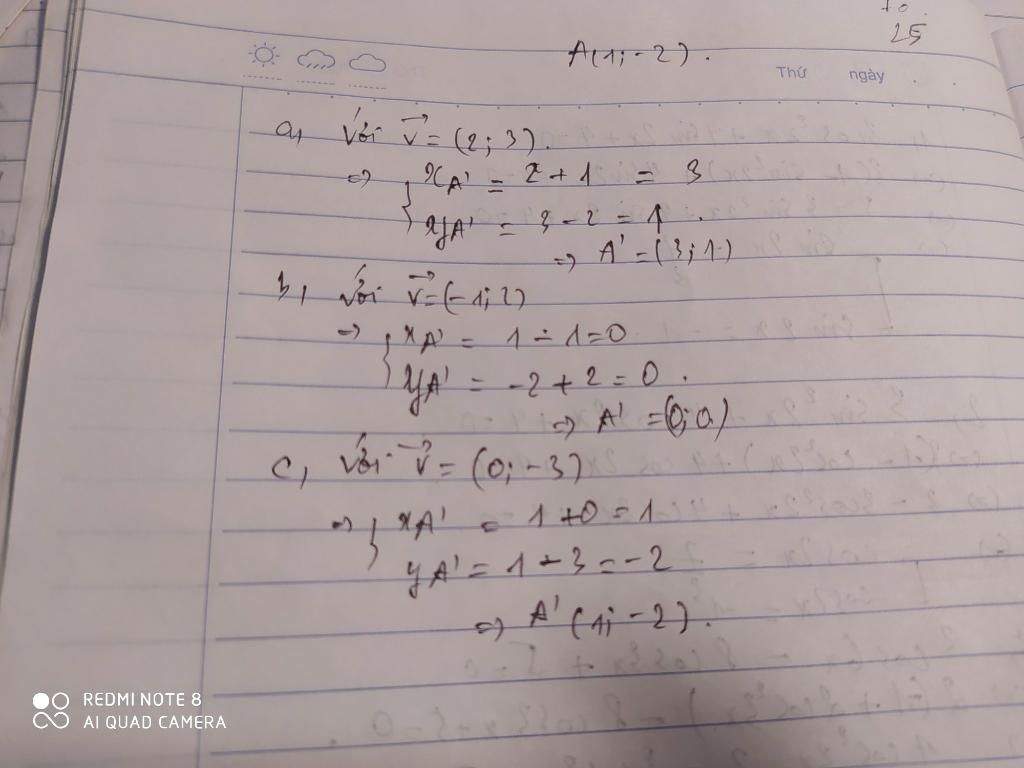 25
A(1; -2).
Thứ ngày
a, Với v⃗ = (2; 3).
=> { xA' = 2 + 1 = 3
yA' = 3 - 2 = 1.
=> A' = (3; 1)
b, Với v⃗ = (-1; 2)
=> { xA' = 1 - 1 = 0
yA' = -2 + 2 = 0.
=> A' = (0; 0)
c, Với v⃗ = (0; -3)
=> { xA' = 1 + 0 = 1
yA' = 1 - 3 = -2
=> A' (1; -2).
REDMI NOTE 8
AI QUAD CAMERA